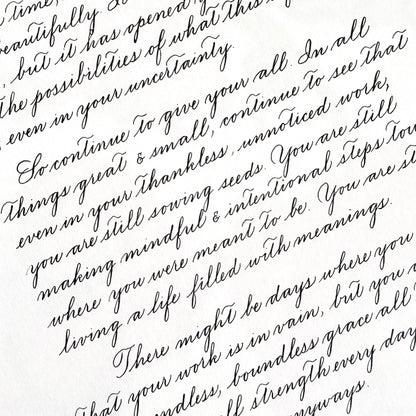 time,
beautifully
, but it has opened
the possibilities of what this
, even in your uncertainty.
So continue to give your all. In all
things great & small, continue to see that
even in your thankless, unnoticed work,
you are still sowing seeds. You are still
making mindful & intentional steps
where you were meant to be. You are
living a life filled with meanings.
There might be days where you
that your work is in vain, but you
boundless grace all
strength every day
anyways.